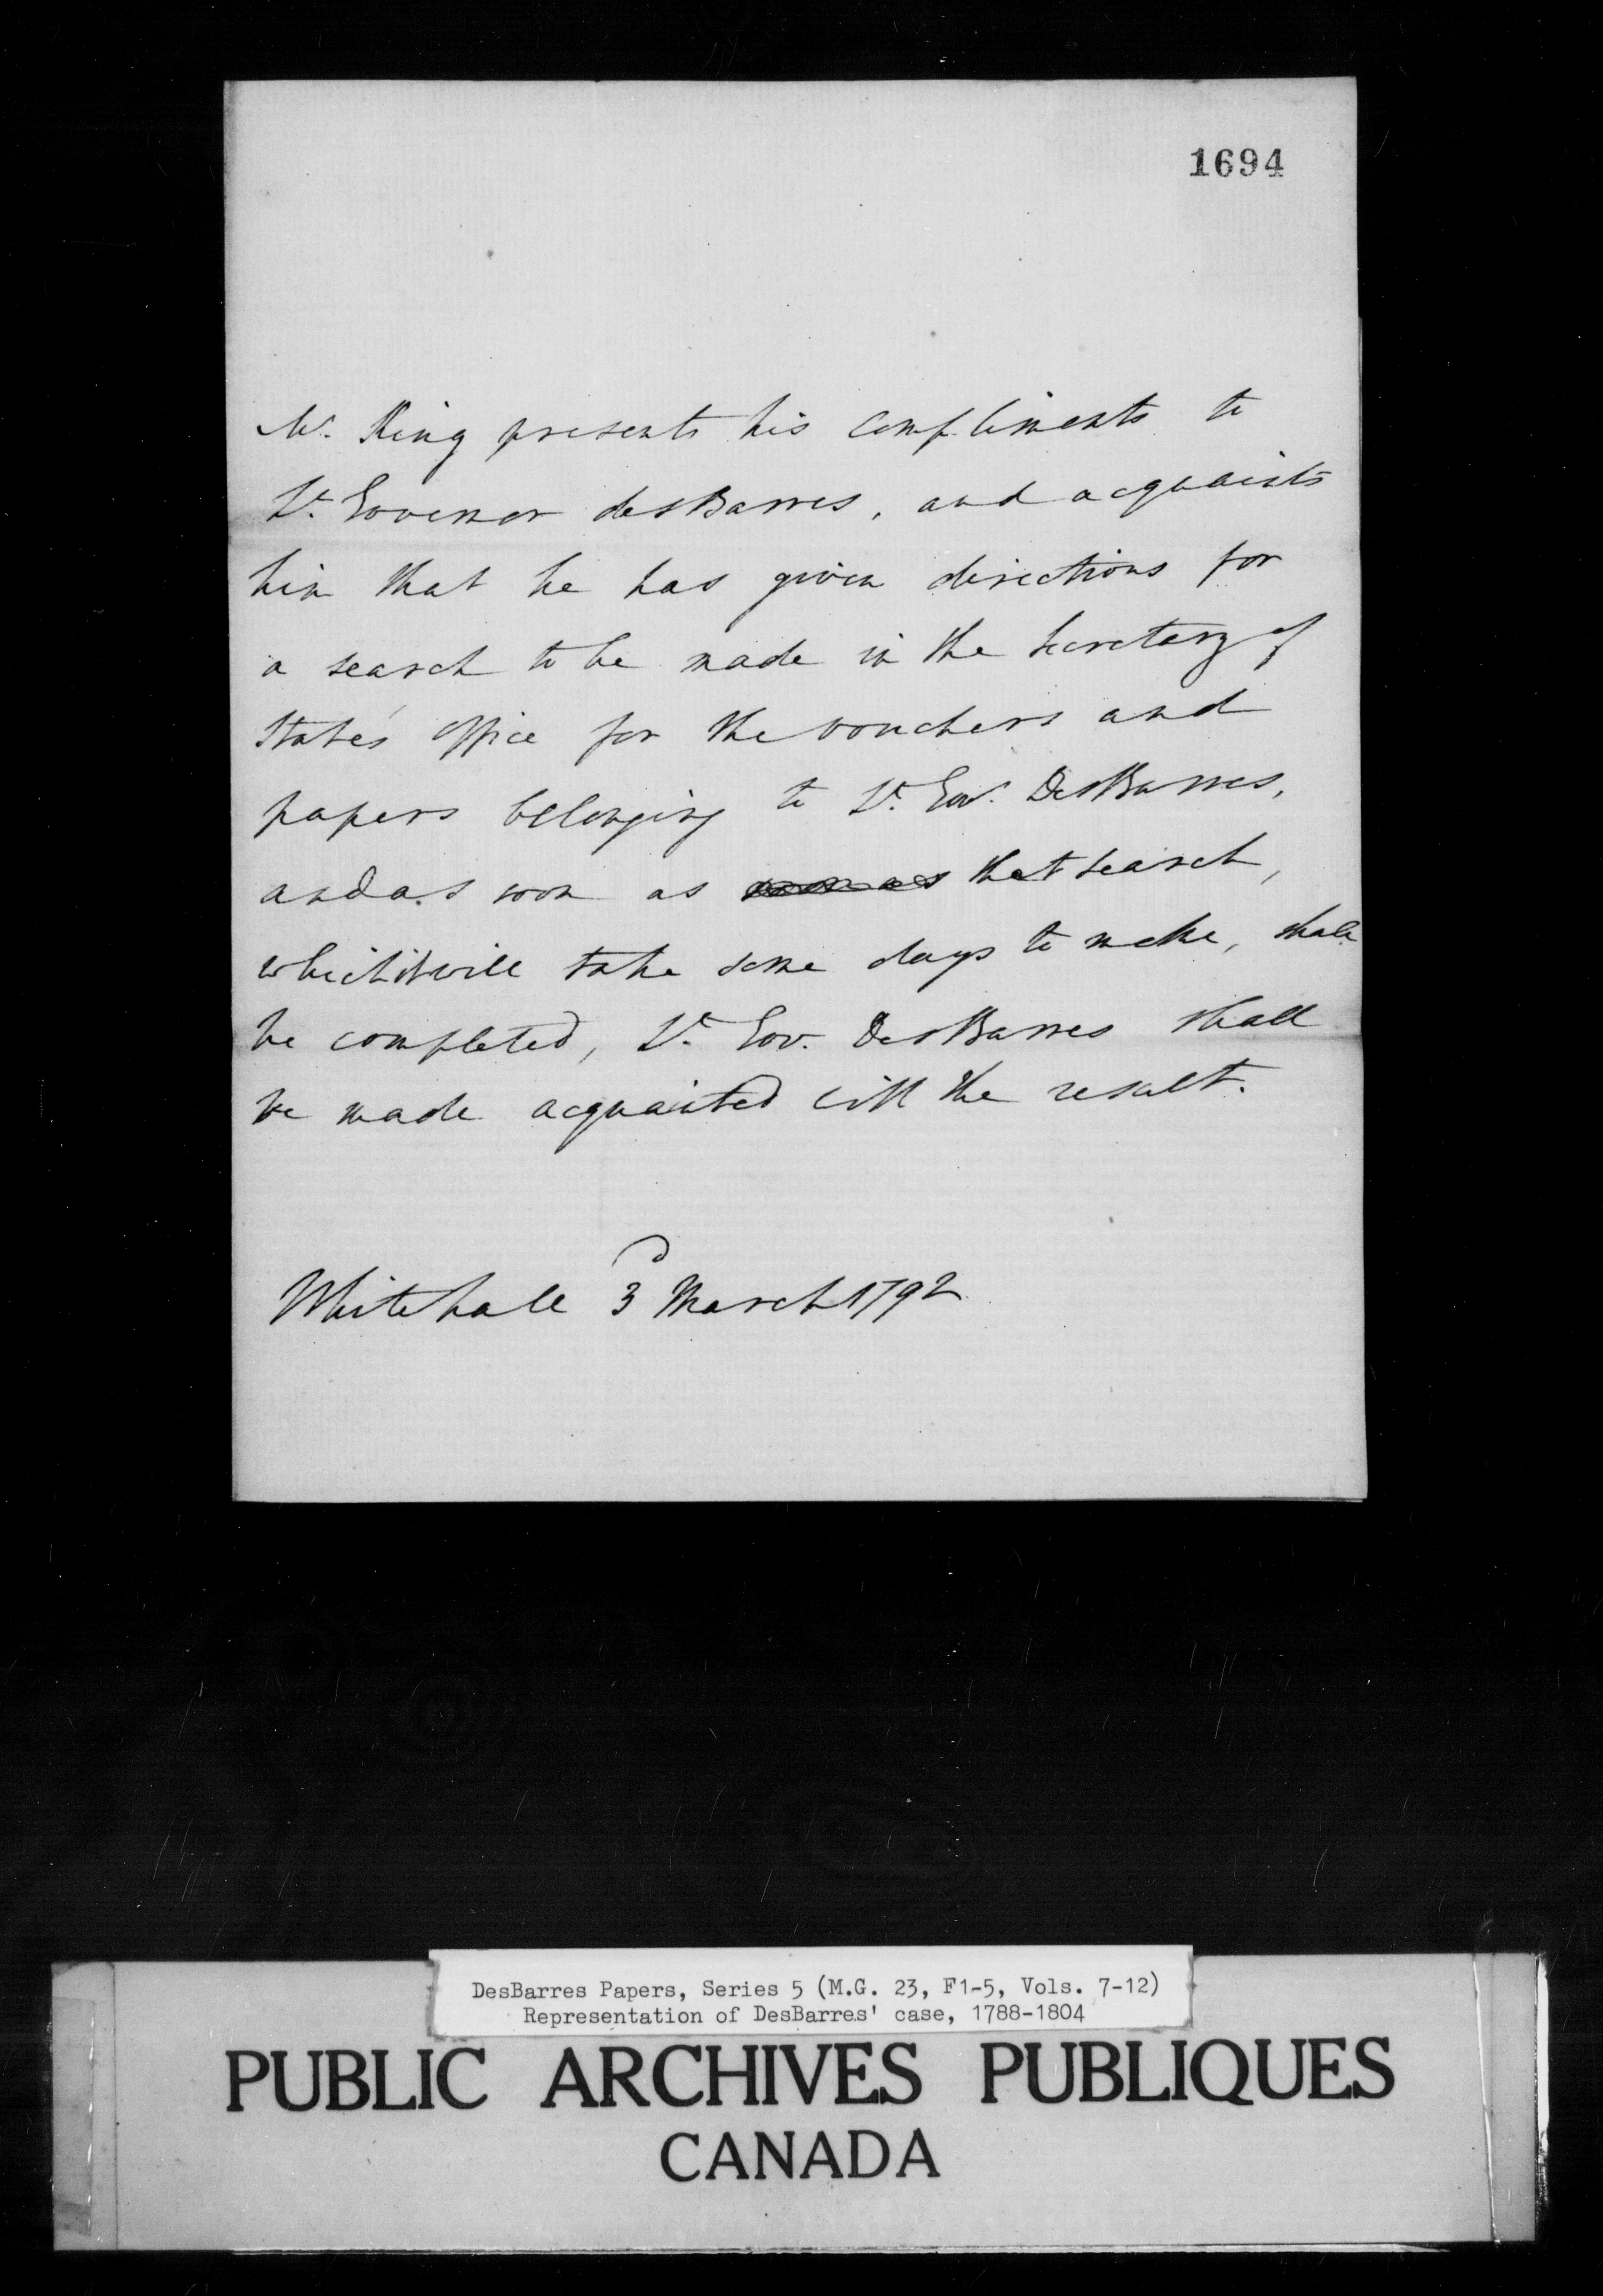 1694
Mr. King presents his compliments to
Lt. Governor desBarres, and acquaints
him that he has given directions for
a search to be made in the Secretary of
State's Office for the vouchers and
papers belonging to Lt. Gov. DesBarres,
and as soon as that search,
which it will take some days to make, shall
be completed, Lt. Gov. DesBarres shall
be made acquainted with the result.
Whitehall 3d March 1792
DesBarres Papers, Series 5 (M.G. 23, F1-5, Vols. 7-12)
Representation of DesBarres' case, 1788-1804
PUBLIC ARCHIVES PUBLIQUES
CANADA